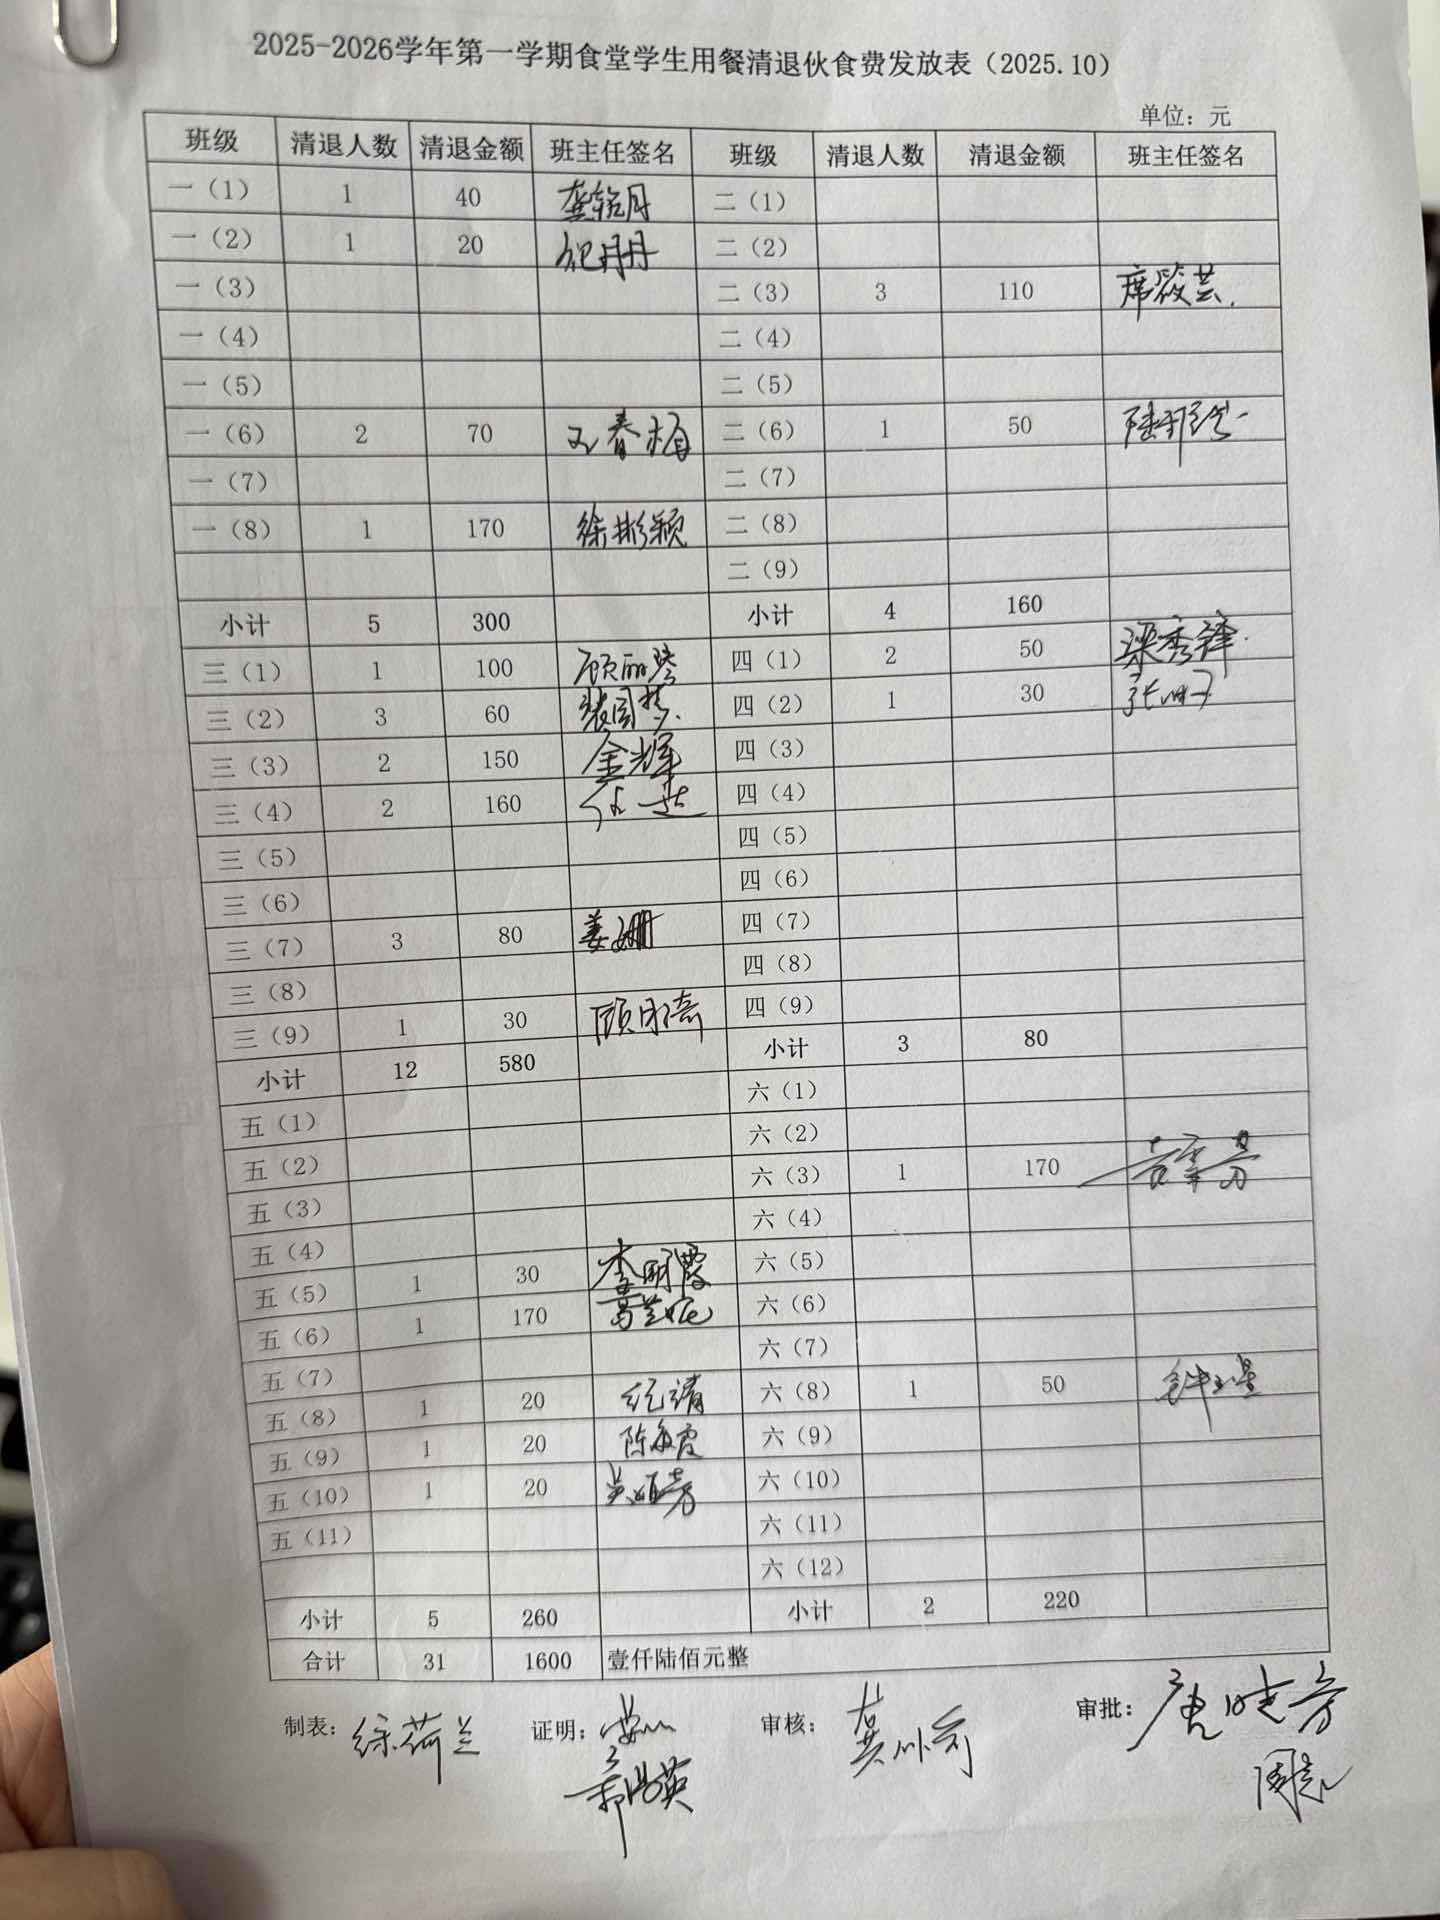 2025-2026学年第一学期食堂学生用餐清退伙食费发放表（2025.10）
单位：元
班级 清退人数 清退金额 班主任签名 班级 清退人数 清退金额 班主任签名
一（1） 1 40 二（1）
一（2） 1 20 纪丹丹 二（2）
一（3） 二（3） 3 110 席筱芸
一（4） 二（4）
一（5） 二（5）
一（6） 2 70 王春梅 二（6） 1 50
一（7） 二（7）
一（8） 1 170 徐彬颖 二（8）
二（9）
小计 5 300 小计 4 160
三（1） 1 100 顾丽琴 四（1） 2 50 梁秀锋
三（2） 3 60 四（2） 1 30
三（3） 2 150 金辉 四（3）
三（4） 2 160 四（4）
三（5） 四（5）
三（6） 四（6）
三（7） 3 80 姜姗 四（7）
三（8） 四（8）
三（9） 1 30 四（9）
小计 12 580 小计 3 80
五（1） 六（1）
五（2） 六（2）
五（3） 六（3） 1 170
五（4） 六（4）
五（5） 1 30 李明霞 六（5）
五（6） 1 170 六（6）
五（7） 六（7）
五（8） 1 20 纪靖 六（8） 1 50
五（9） 1 20 陈海霞 六（9）
五（10） 1 20 六（10）
五（11） 六（11）
六（12）
小计 5 260 小计 2 220
合计 31 1600 壹仟陆佰元整
制表： 徐荷兰 证明： 审核： 审批： 唐晓芳